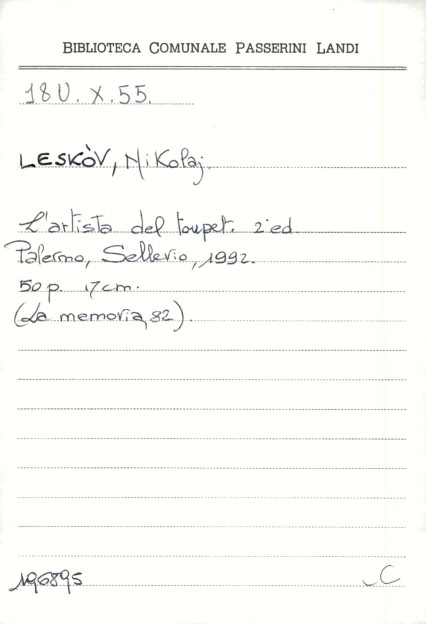 BIBLIOTECA COMUNALE PASSERINI LANDI
18U. X. 55.
LESKÒV, Nikolaj.
L'artista del toupet. 2ª ed.
Palermo, Sellerio, 1992.
50 p. 17 cm.
(La memoria, 82).
196895
C